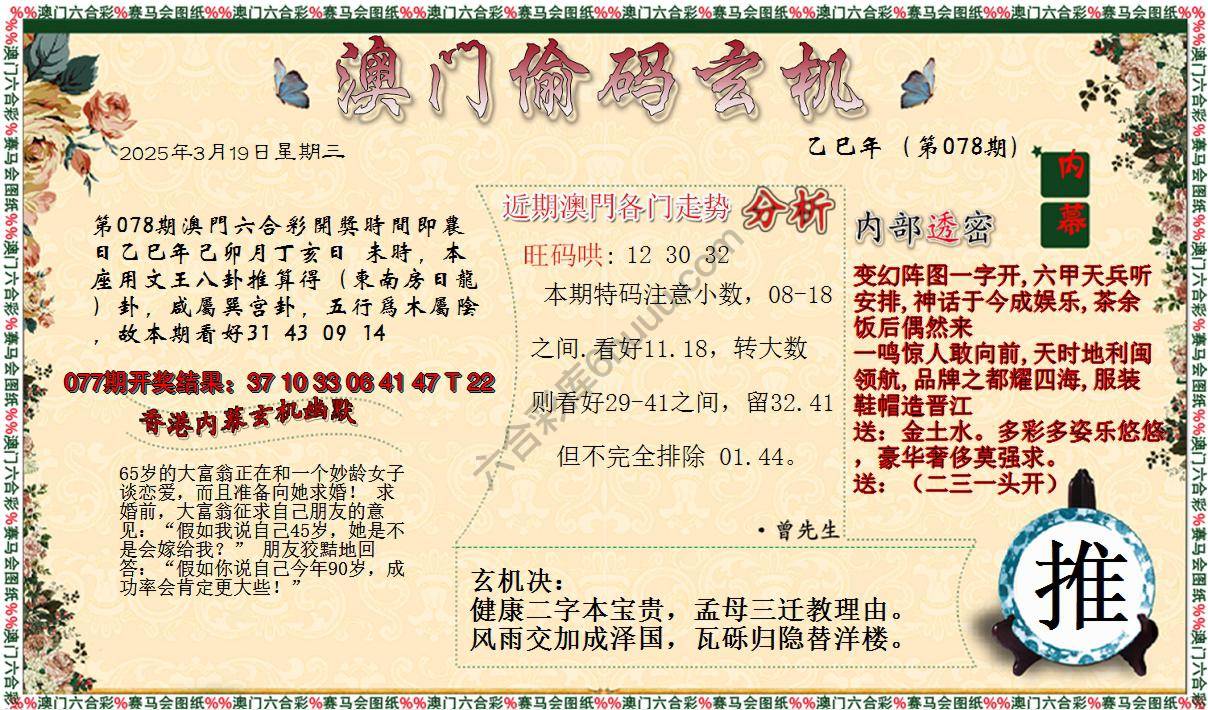 %%澳门六合彩%赛马会图纸%%澳门六合彩%赛马会图纸%%澳门六合彩%赛马会图纸
澳门偷码玄机
2025年3月19日星期三
乙巳年（第078期）
内
幕
第078期澳門六合彩開獎時間即農
日乙巳年己卯月丁亥日 未時，本
座用文王八卦推算得（東南房日龍
）卦，咸屬巽宫卦，五行爲木屬陰
，故本期看好31 43 09 14
077期开奖结果：37 10 33 06 41 47 T 22
香港内幕玄机幽默
65岁的大富翁正在和一个妙龄女子
谈恋爱，而且准备向她求婚！ 求
婚前，大富翁征求自己朋友的意
见：“假如我说自己45岁，她是不
是会嫁给我？” 朋友狡黠地回
答：“假如你说自己今年90岁，成
功率会肯定更大些！”
近期澳門各门走势 分析
旺码哄: 12 30 32
本期特码注意小数，08-18
之间.看好11.18，转大数
则看好29-41之间，留32.41
但不完全排除 01.44。
·曾先生
六合彩库6huuu.com
内部透密
变幻阵图一字开,六甲天兵听
安排,神话于今成娱乐,茶余
饭后偶然来
一鸣惊人敢向前,天时地利闽
领航,品牌之都耀四海,服装
鞋帽造晋江
送：金土水。多彩多姿乐悠悠
，豪华奢侈莫强求。
送：（二三一头开）
玄机决：
健康二字本宝贵，孟母三迁教理由。
风雨交加成泽国，瓦砾归隐替洋楼。
推